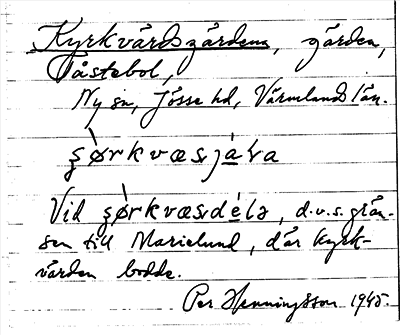 Kyrkvärdsgärdena, gärden,
Tåstebol,
Ny sn, Jösse hd, Värmlands län.
şørkvæsjäʹra
Vid şørkvæsdéla, d.v.s. grän-
sen till Marielund, där kyrk-
värden bodde.
Per Henningsson 1945.